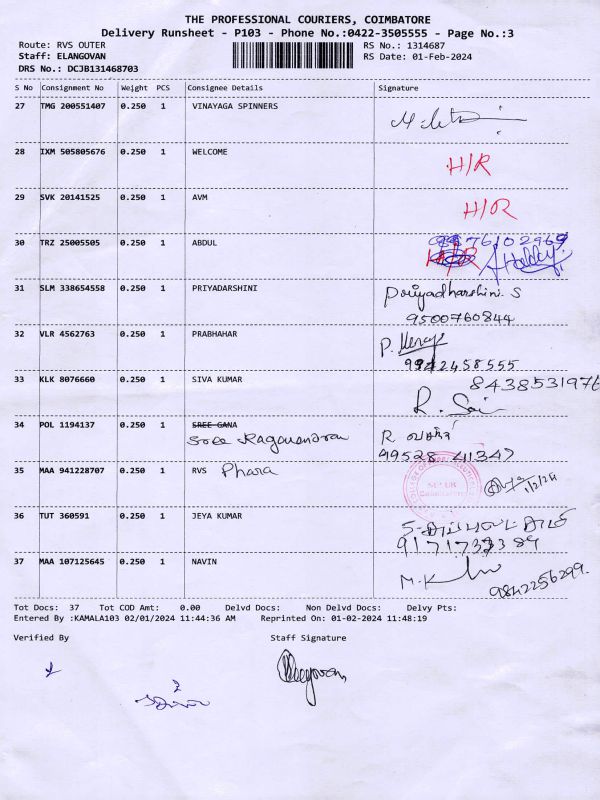 THE PROFESSIONAL COURIERS, COIMBATORE
Delivery Runsheet - P103 - Phone No.:0422-3505555 - Page No.:3
Route: RVS OUTER RS No.: 1314687
Staff: ELANGOVAN RS Date: 01-Feb-2024
DRS No.: DCJB131468703
S No Consignment No Weight PCS Consignee Details Signature
27 TMG 200551407 0.250 1 VINAYAGA SPINNERS
28 IXM 505805676 0.250 1 WELCOME H/R
29 SVK 20141525 0.250 1 AVM H/R
30 TRZ 25005505 0.250 1 ABDUL
31 SLM 338654558 0.250 1 PRIYADARSHINI Priyadharshini. S
9500760844
32 VLR 4562763 0.250 1 PRABHAHAR P.
9942458555
33 KLK 8076660 0.250 1 SIVA KUMAR 8438531976
R. Sai
34 POL 1194137 0.250 1 SREE GANA R
Sree Ragavendran 99528 41347
35 MAA 941228707 0.250 1 RVS Phara 1/2/24
36 TUT 360591 0.250 1 JEYA KUMAR
37 MAA 107125645 0.250 1 NAVIN M.K
9842256299.
Tot Docs: 37 Tot COD Amt: 0.00 Delvd Docs: Non Delvd Docs: Delvy Pts:
Entered By :KAMALA103 02/01/2024 11:44:36 AM Reprinted On: 01-02-2024 11:48:19
Verified By Staff Signature
Elangovan